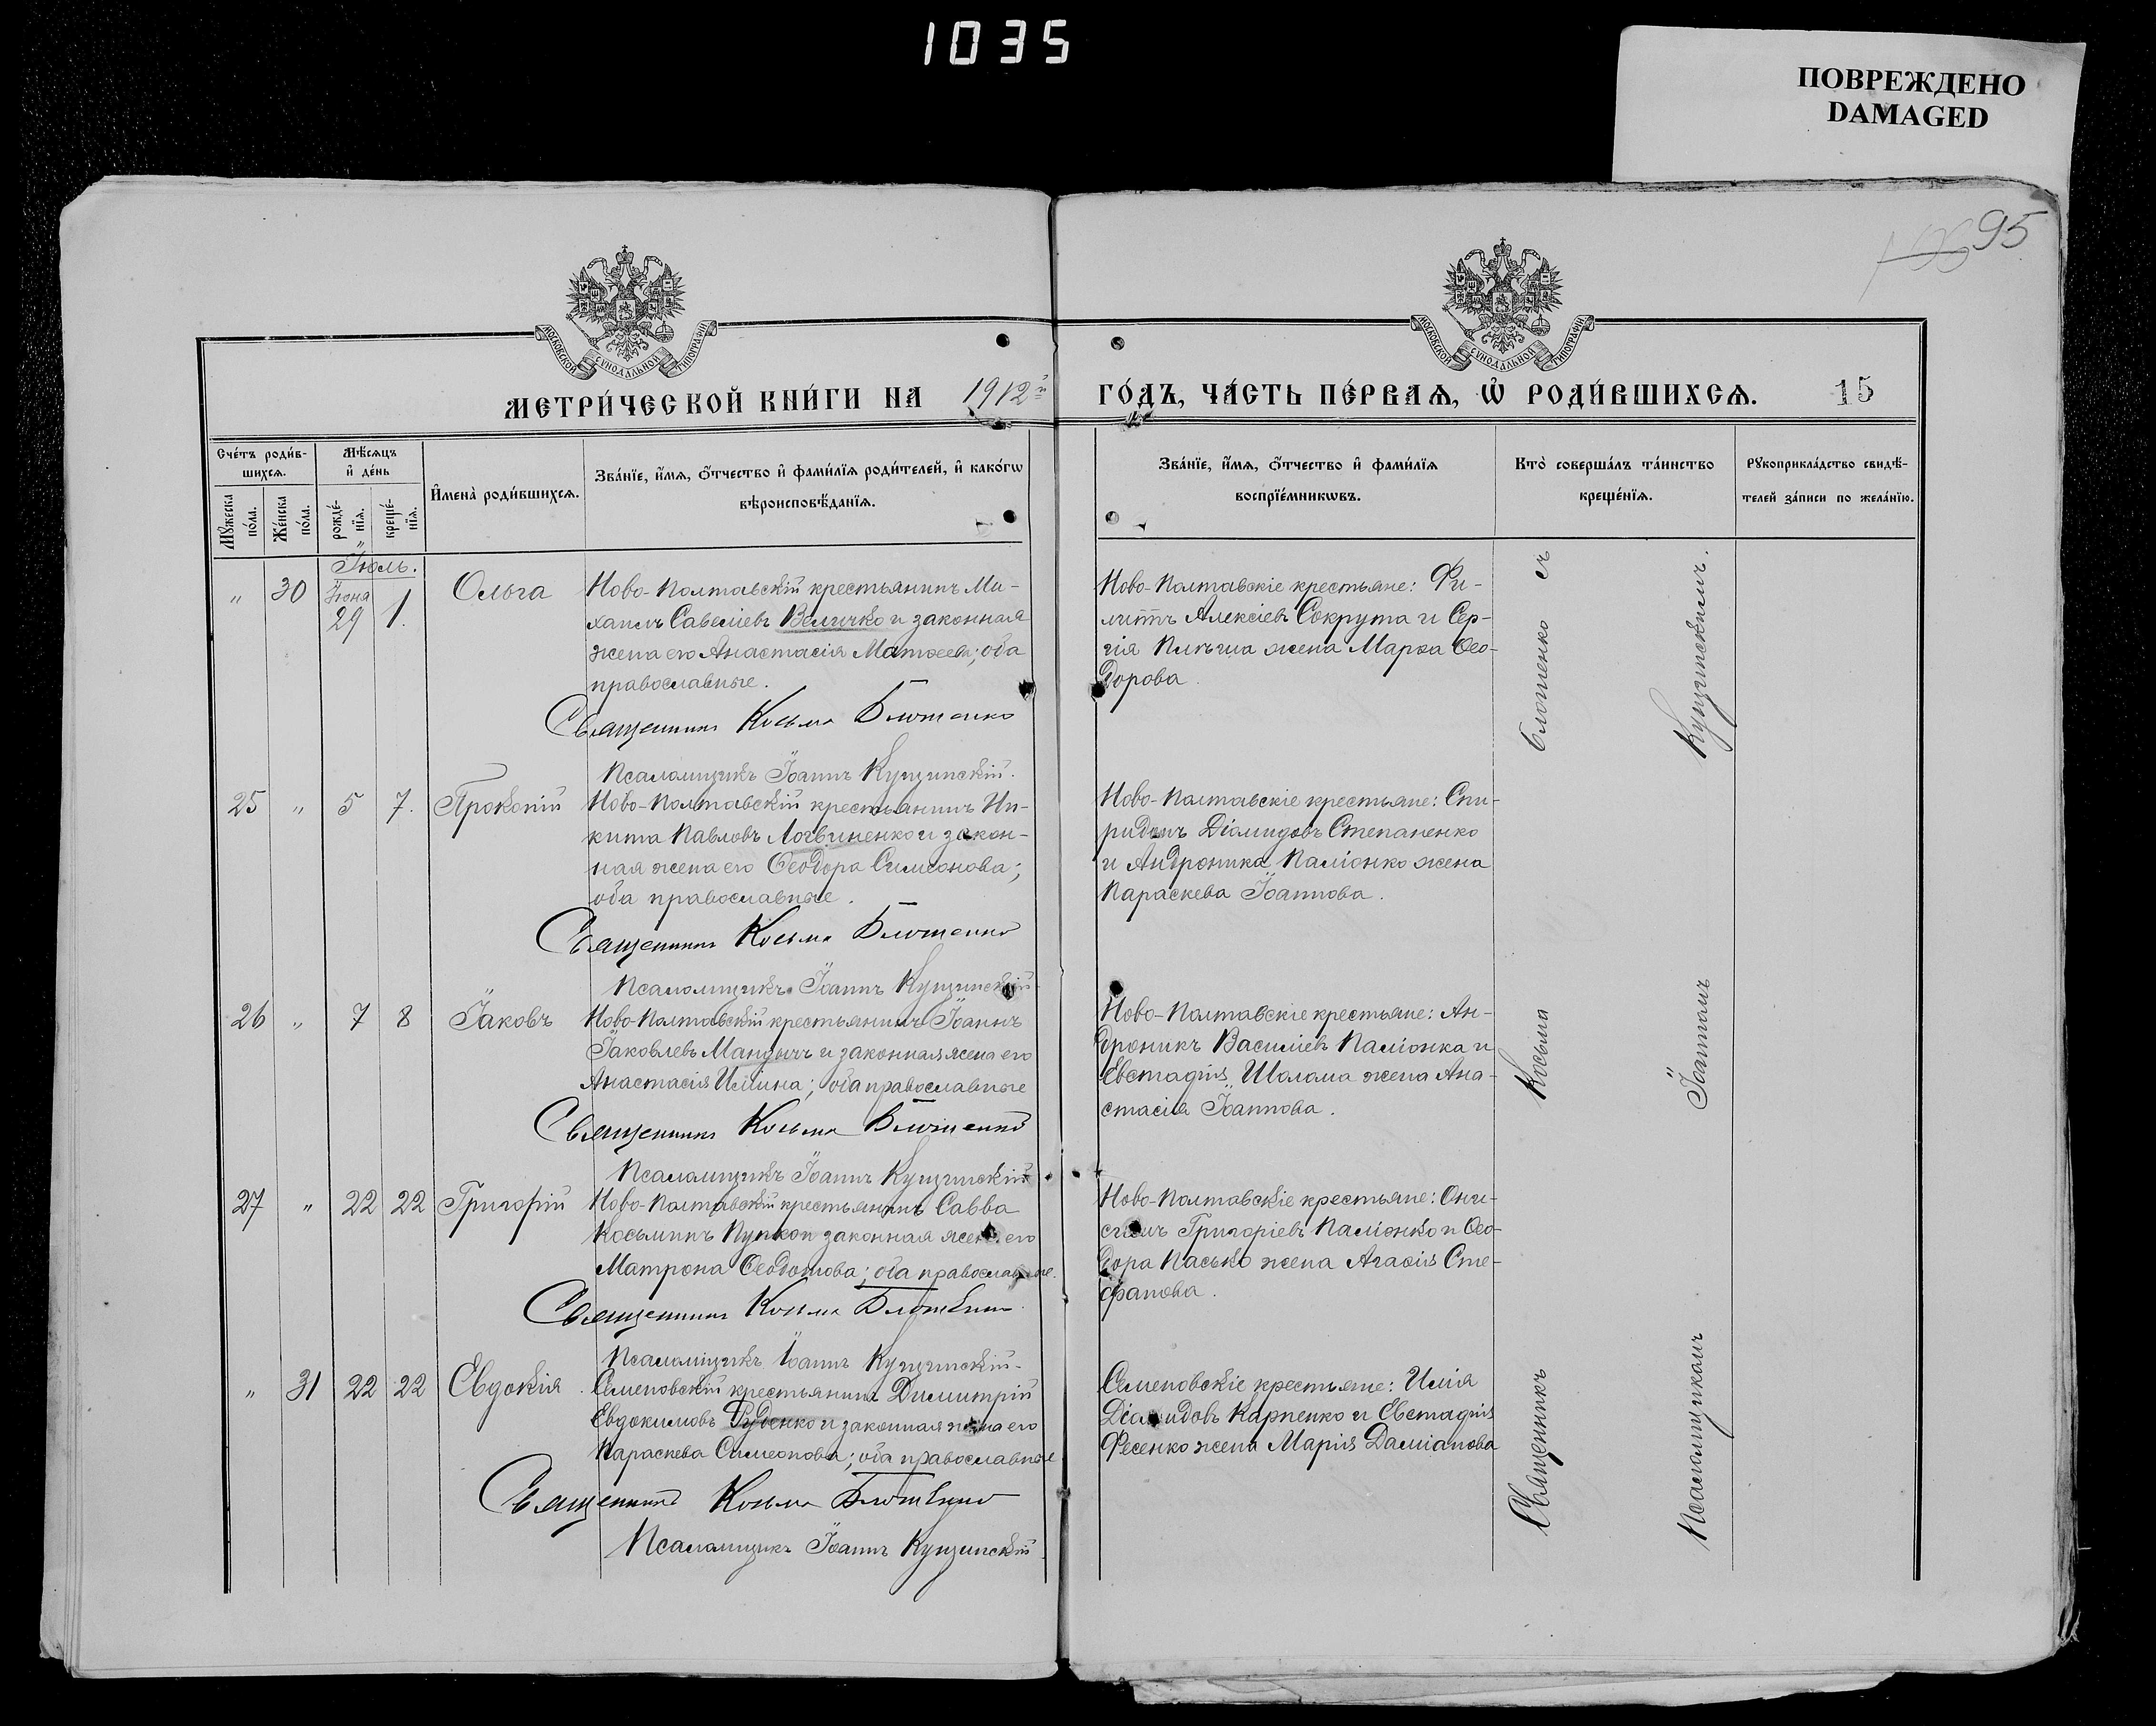 1035
ПОВРЕЖДЕНО
DAMAGED
95
МОСКОВСКОЙ СѴНОДАЛЬНОЙ ТИПОГРАФІИ
МОСКОВСКОЙ СѴНОДАЛЬНОЙ ТИПОГРАФІИ
МЕТРИ́ЧЕСКОЙ КНИ́ГИ НА 1912й ГО́ДЪ, ЧА́СТЬ ПЕ́РВАѦ, Ѡ РОДИ́ВШИХСѦ. 15
Сче́тъ роди́в-
шихсѧ.
Мꙋжеска
по́ла.
Же́нска
по́ла.
Мѣ́сѧцъ
и҆ де́нь
рожде́-
нїѧ.
креще́-
нїѧ.
И҆мена̀ роди́вшихсѧ.
Зва́нїе, и҆́мѧ, ѻ҆́тчество и҆ фами́лїѧ роди́телей, и҆ како́гѡ
вѣроисповѣ́данїѧ.
Зва́нїе, и҆́мѧ, ѻ҆́тчество и҆ фами́лїѧ
воспрїе́мникѡвъ.
Кто̀ соверша́лъ та́инство
креще́нїѧ.
Рꙋкоприкла́дство свидѣ́-
телей за́писи по жела́нїю.
Іюль.
" 30 Іюня 29 1. Ольга
Ново-Полтавскій крестьянинъ Ми-
хаилъ Савеліевъ Величко и законная
жена его Анастасія Матѳеева; оба
православные.
Священникъ Косьма Блошенко
Псаломщикъ Іоаннъ Кущинскій.
Ново-Полтавскіе крестьяне: Фи-
липпъ Алексіевъ Сокрута и Сер-
гія жена Марѳа Ѳео-
дорова.
25 " 5 7. Прокопій
Ново-Полтавскій крестьянинъ Ни-
кита Павловъ Логвиненко и закон-
ная жена его Ѳеодора Симеонова;
оба православные.
Священникъ Косьма Блошенко
Псаломщикъ Іоаннъ Кущинскій
Ново-Полтавскіе крестьяне: Спи-
ридонъ Діомидовъ Степаненко
и Андроника Паліонко жена
Параскева Іоаннова.
26 " 7 8 Іаковъ
Ново-Полтавскій крестьянинъ Іоаннъ
Іаковлевъ Мандычъ и законная жена его
Анастасія Иліина; оба православные
Священникъ Косьма Блошенко
Псаломщикъ Іоаннъ Кущинскій
Ново-Полтавскіе крестьяне: Ан-
дроникъ Василіевъ Паліонка и
Евстафія Шолома жена Ана-
стасія Іоаннова.
27 " 22 22 Григорій
Ново-Полтавскій крестьянинъ Савва
Косьминъ Пупко и законная жена его
Матрона Ѳеодотова; оба православные.
Священникъ Косьма Блошенко
Псаломщикъ Іоаннъ Кущинскій
Ново-Полтавскіе крестьяне: Они-
симъ Григоріевъ Паліонко и Ѳео-
дора Пасько жена Агаѳія Сте-
фанова.
" 31 22 22 Евдокія
Семеновскій крестьянинъ Димитрій
Евдокимовъ Руденко и законная жена его
Параскева Симеонова; оба православные
Священникъ Косьма Блошенко
Псаломщикъ Іоаннъ Кущинскій
Семеновскіе крестьяне: Илія
Діомидовъ Карпенко и Евстафія
Фесенко жена Марія Даміанова
Священникъ Косьма Блошенко съ
Псаломщикомъ Іоанномъ Кущинскимъ.